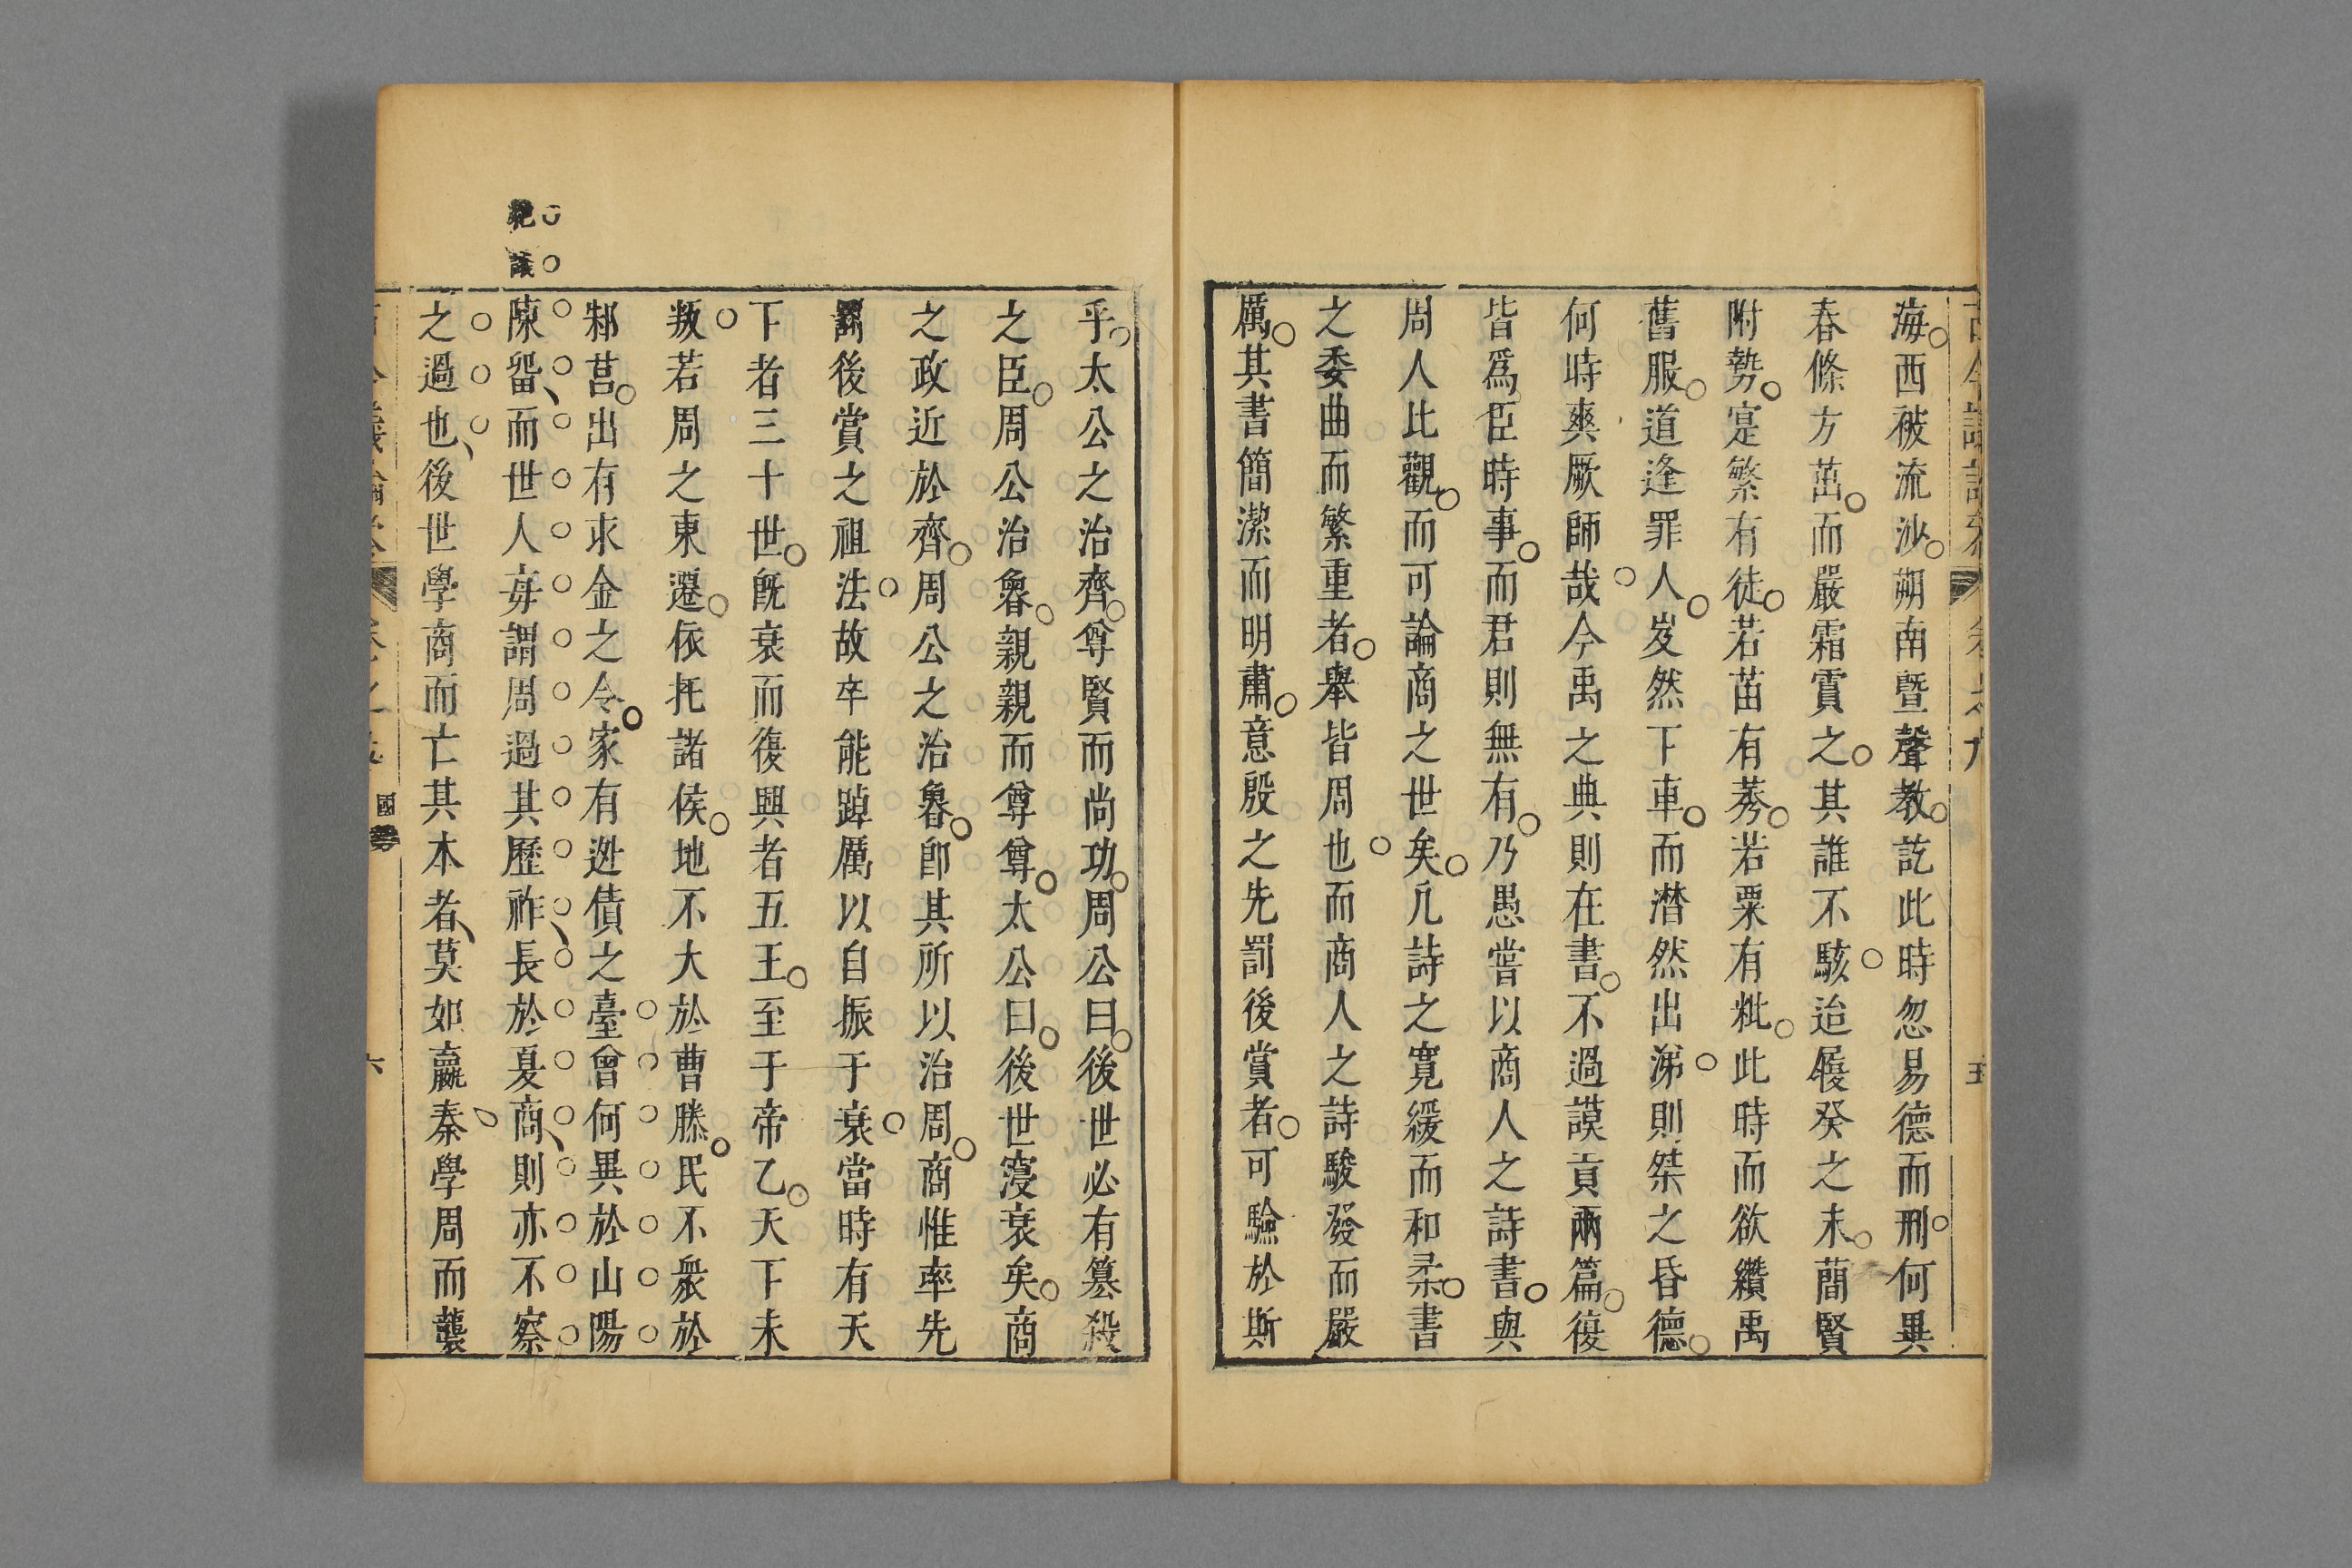 海西被流沙朔南暨聲教訖此時忽易德而刑何異
春條方茁而嚴霜霣之其誰不駭迨履癸之末蕳賢
附勢寔繁有徒若苗有莠若粟有粃此時而欲纘禹
舊服道逢罪人岌然下車而潸然出涕則桀之昏德
何時爽厥師哉今禹之典則在書不過謨貢兩篇復
皆爲臣時事而君則無有乃愚嘗以商人之詩書與
周人比觀而可論商之世矣凡詩之寬緩而和柔書
之委曲而繁重者舉皆周也而商人之詩駿發而嚴
厲其書簡潔而明肅意殷之先罰後賞者可驗於斯
五
乎太公之治齊尊賢而尚功周公曰後世必有篡殺
之臣周公治魯親親而尊尊太公曰後世寖衰矣商
之政近於齊周公之治魯卽其所以治周商惟率先
罰後賞之祖法故卒能踔厲以自振于衰當時有天
下者三十世旣衰而復興者五王至于帝乙天下未
叛若周之東遷依托諸侯地不大於曹滕民不衆於
邾莒出有求金之令家有逃債之臺曾何異於山陽
陳畱而世人毎謂周過其歷祚長於夏商則亦不察
之過也後世學商而亡其本者莫如嬴秦學周而襲
議
國勢
六